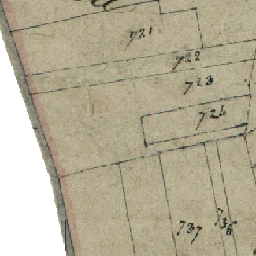 721
722
723
724
737
736